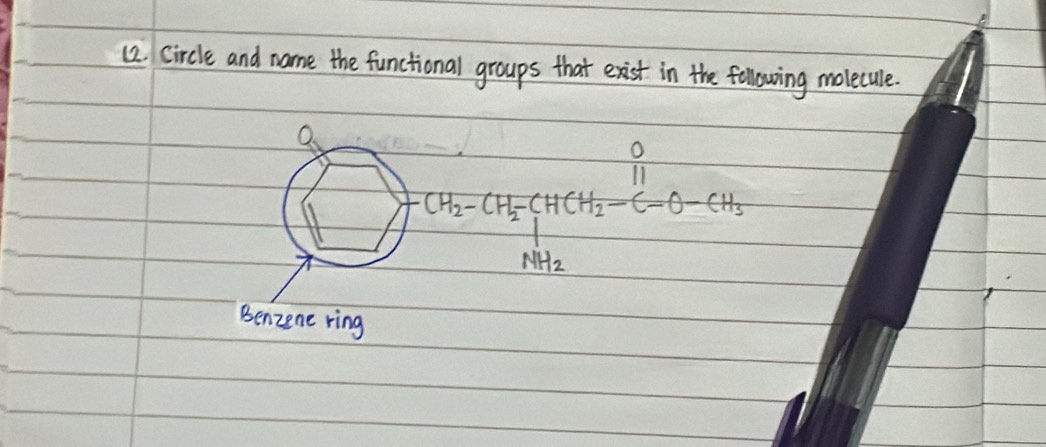 12. Circle and name the functional groups that exist in the following molecule.
O O
||
CH₂-CH₂-CHCH₂-C-O-CH₃
|
NH₂
Benzene ring